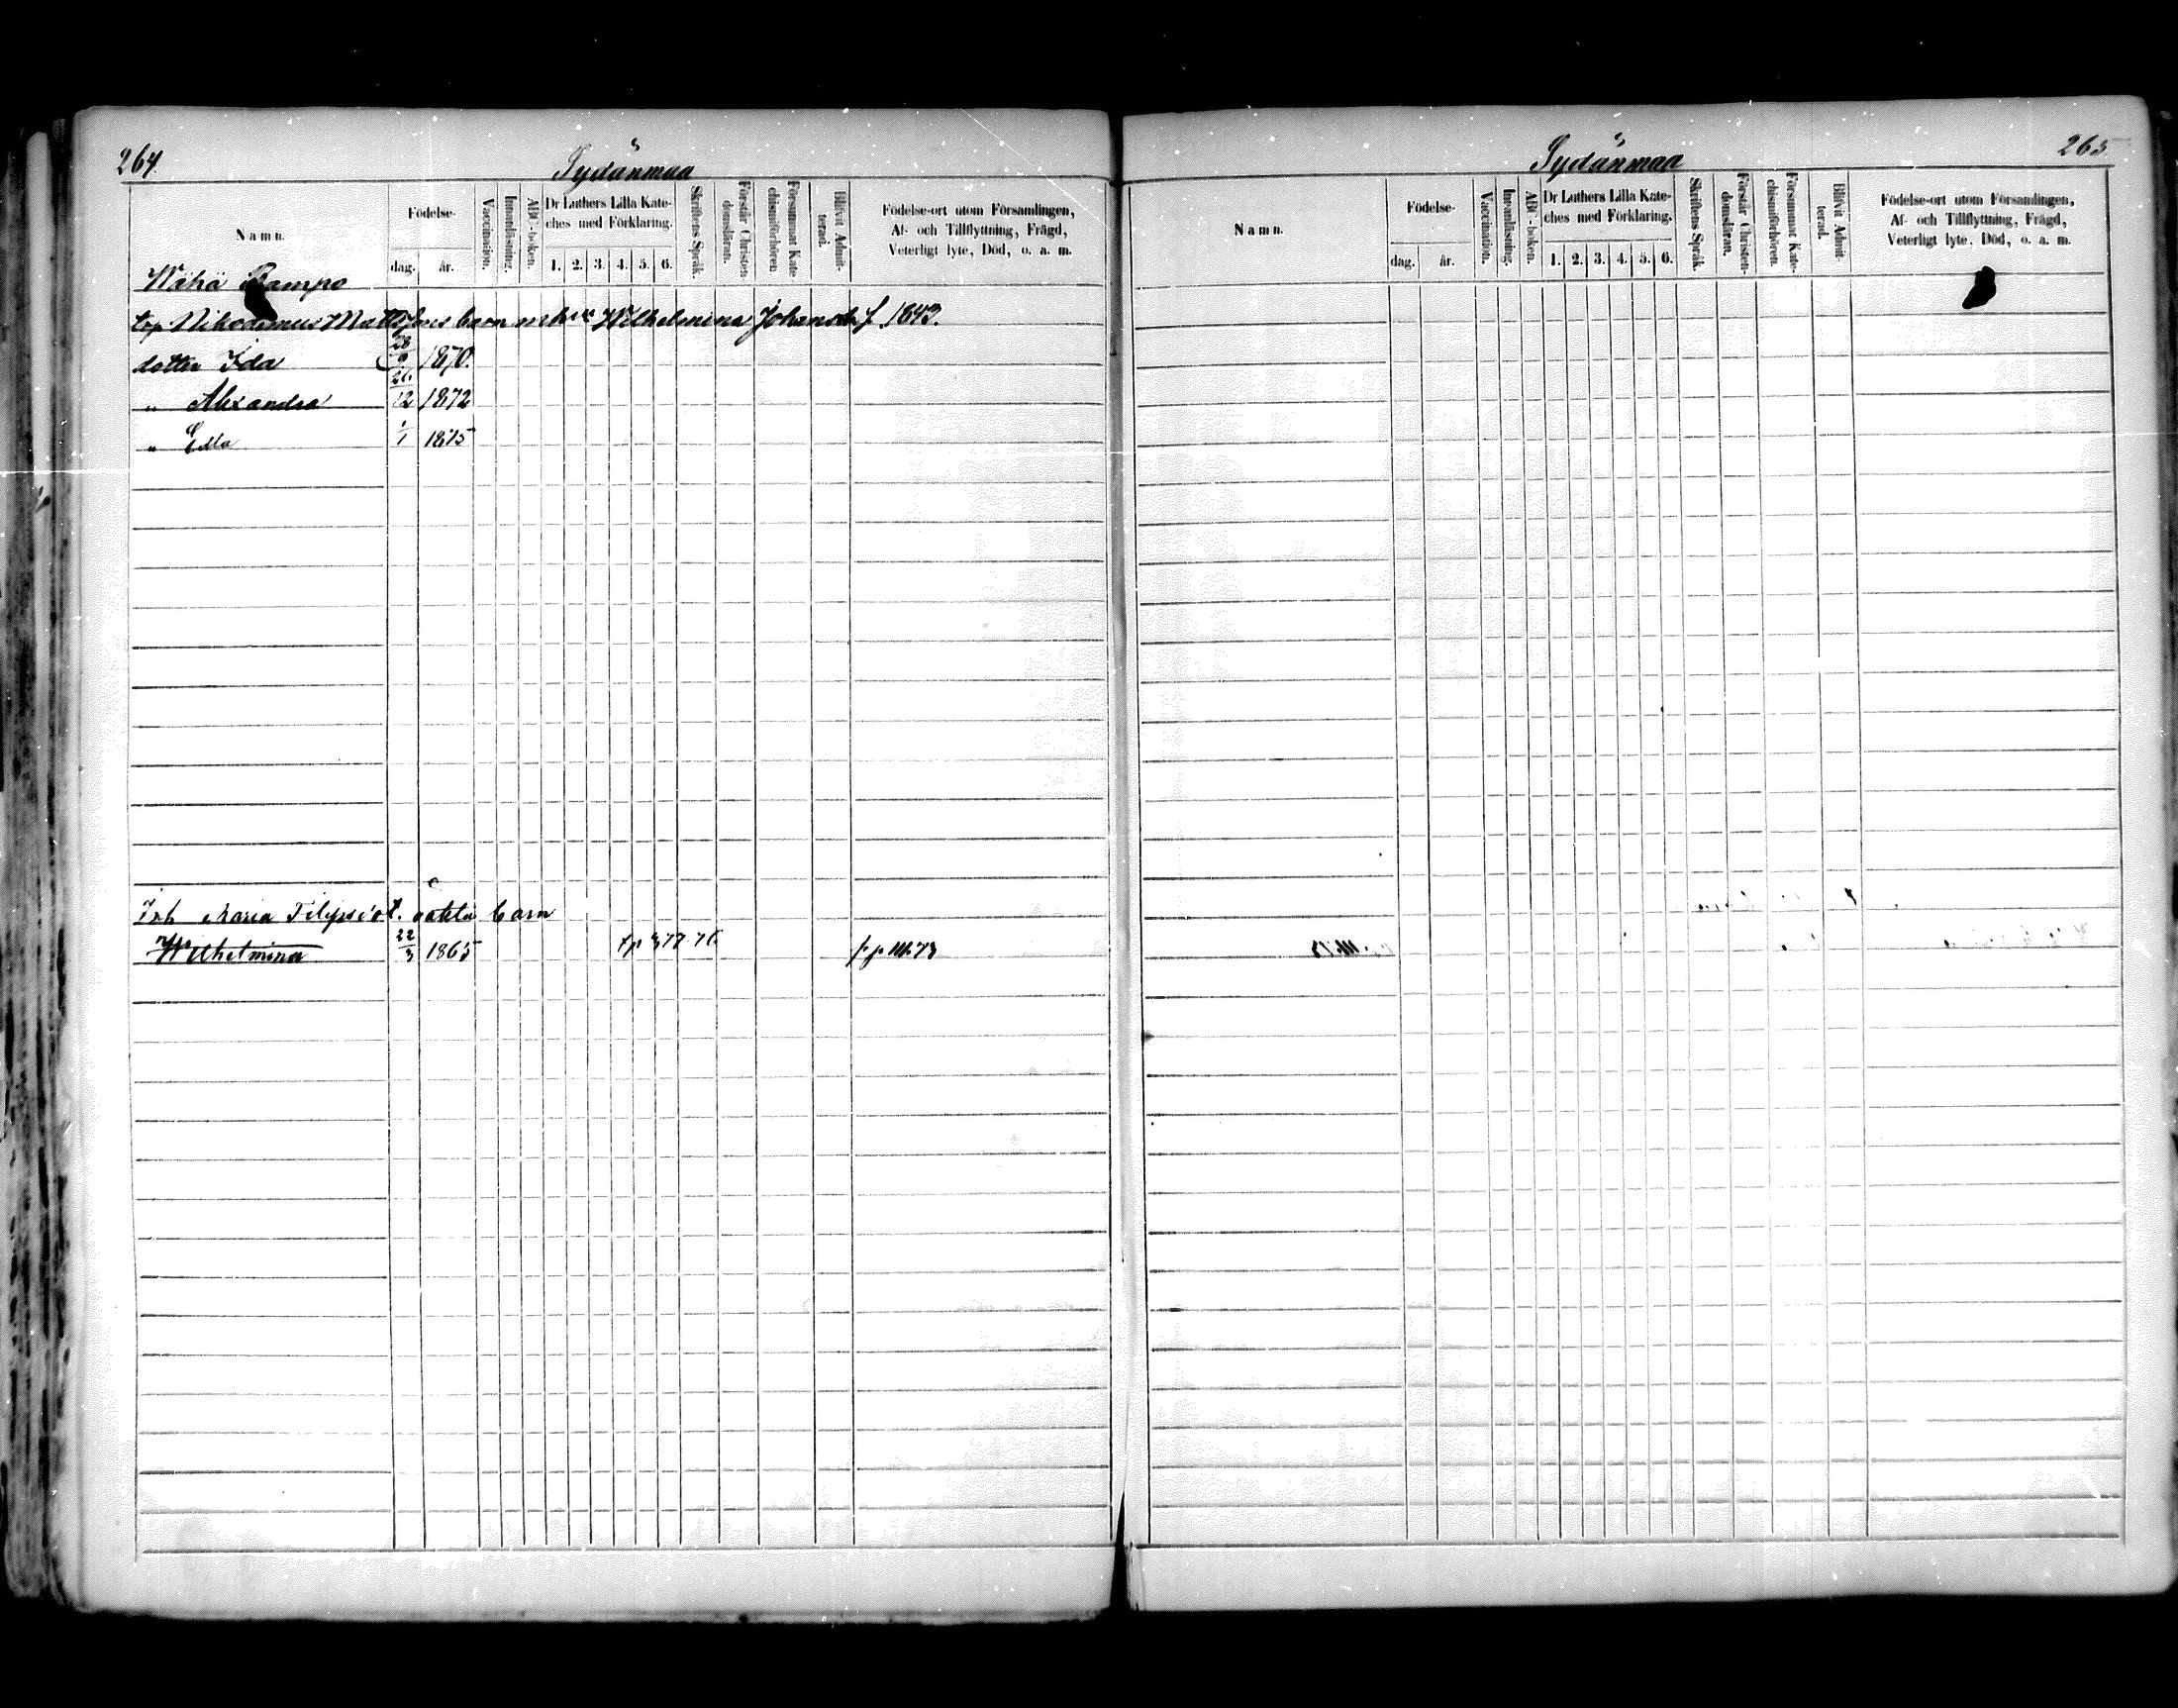 264
Sydänmaa
Namn.
Födelse-
dag.
år.
Vaccination.
Innanläsning.
ABC-boken.
Dr Luthers Lilla Kate-
ches med Förklaring.
1. 2. 3. 4. 5. 6.
Skriftens Språk.
Förstår Christen-
domsläran.
Försummat Kate
chismiförhören
Blifvit Admit-
terad.
Födelse-ort utom Församlingen,
Af- och Tillflyttning, Frägd,
Veterligt lyte, Död, o. a. m.
Wähä Rampo
torp Nikodemus Mattssons barn m. h. Wilhelmina Johansdr f. 1843.
dotter Ida 28/9 1870.
" Alexandra 26/12 1872
" Edla 1/1 1875
Inh Maria Filipsd. oäkta barn
Wilhelmina 22/3 1865
265
Sydänmaa
Namn.
Födelse-
dag.
år.
Vaccination.
Innanläsning.
ABC-boken.
Dr Luthers Lilla Kate-
ches med Förklaring.
1. 2. 3. 4. 5. 6.
Skriftens Språk.
Förstår Christen-
domsläran.
Försummat Kate-
chismiförhören.
Blifvit Admit-
terad.
Födelse-ort utom Församlingen,
Af- och Tillflyttning, Frägd,
Veterligt lyte, Död, o. a. m.